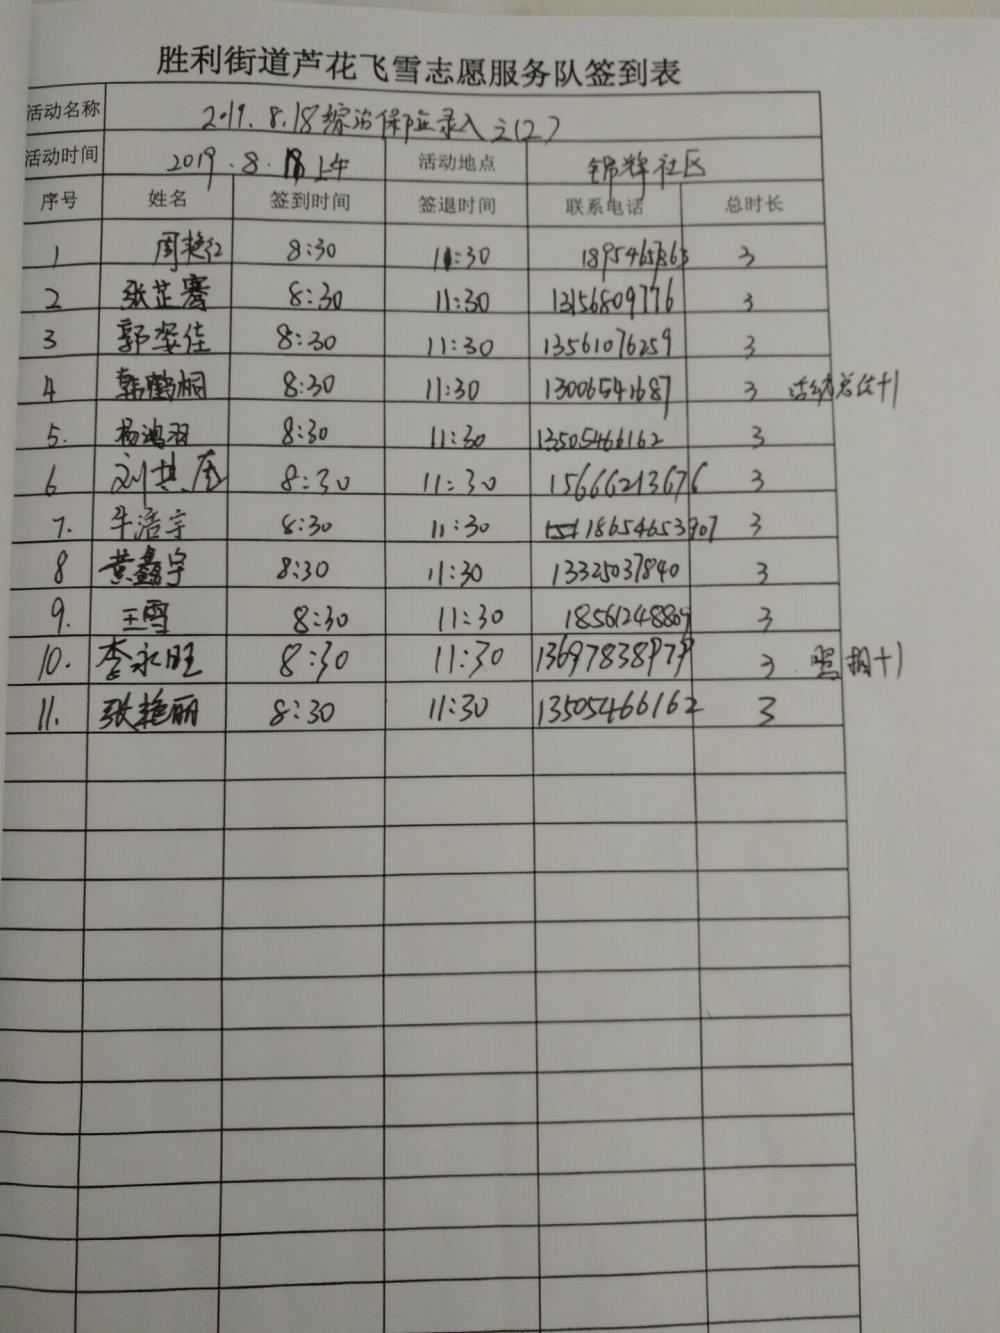 胜利街道芦花飞雪志愿服务队签到表
活动名称 2019.8.18综治保险录入之(2)
活动时间 2019.8.18上午 活动地点 锦辉社区
序号 姓名 签到时间 签退时间 联系电话 总时长
1 周艳红 8:30 11:30 3
2 张芷骞 8:30 11:30 13156809776 3
3 郭姿佳 8:30 11:30 13561076259 3
4 韩鹤桐 8:30 11:30 13006541687 3 活动总结+1
5. 杨鸿羽 8:30 11:30 13505466162 3
6 刘其 8:30 11:30 15666213676 3
7. 牛浩宇 8:30 11:30 18654653907 3
8 黄鑫宇 8:30 11:30 13325037840 3
9. 王雪 8:30 11:30 18561248809 3
10. 李永旺 8:30 11:30 13697838979 3 照相+1
11. 张艳丽 8:30 11:30 13505466162 3